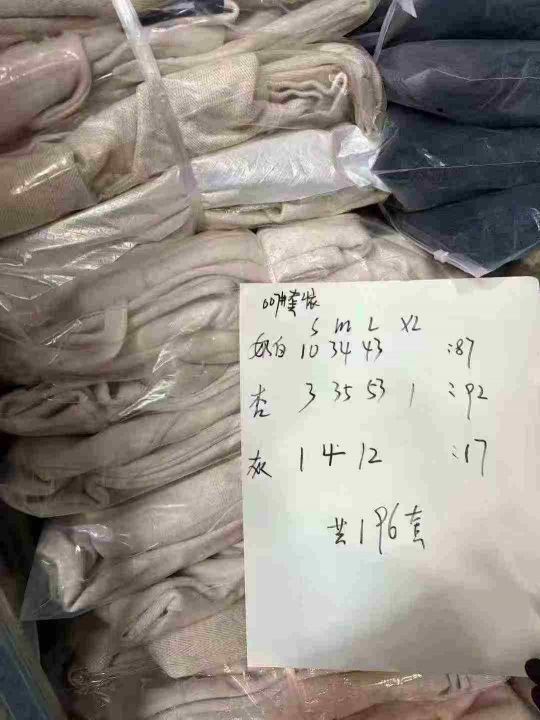 007#套装
S M L XL
奶白 10 34 43 :87
杏 3 35 53 1 :92
灰 1 4 12 :17
共196套